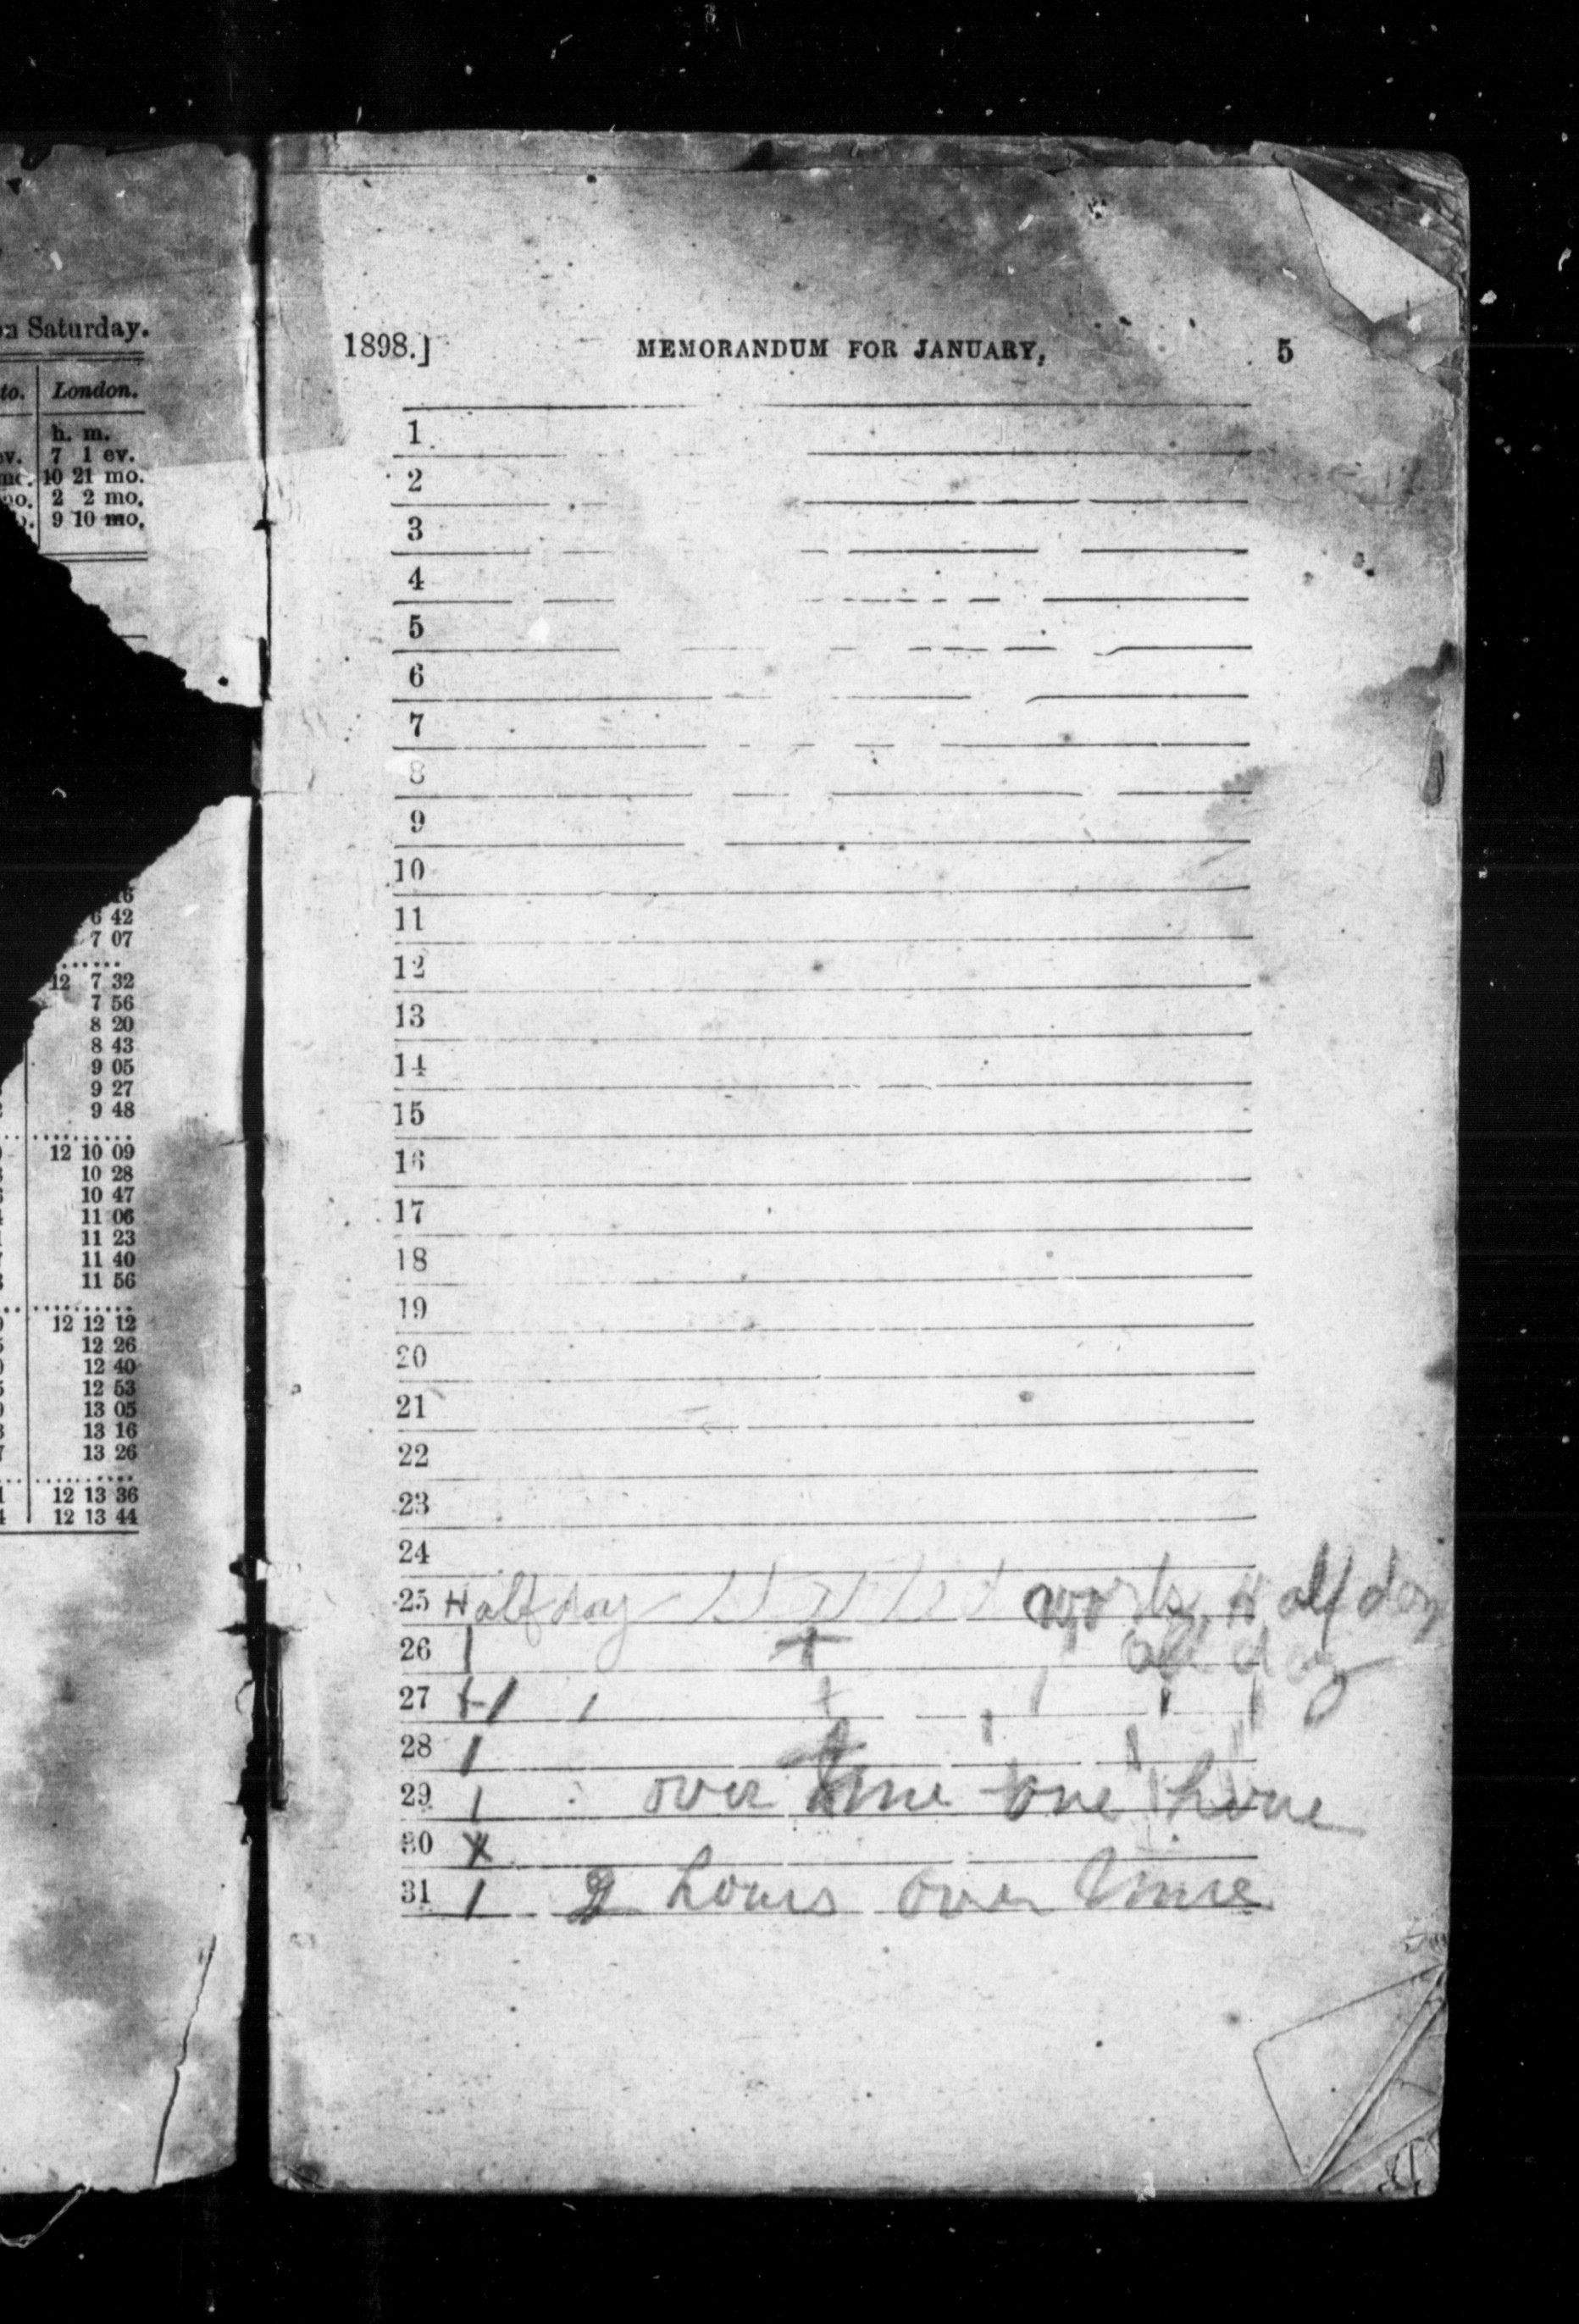 on Saturday.
to. London.
h. m.
ev. 7 1 ev.
mo. 10 21 mo.
mo. 2 2 mo.
9 10 mo.
16
6 42
7 07
12 7 32
7 56
8 20
8 43
9 05
9 27
9 48
12 10 09
10 28
10 47
11 06
11 23
11 40
11 56
12 12 12
12 26
12 40
12 53
13 05
13 16
13 26
12 13 36
12 13 44
1898.] MEMORANDUM FOR JANUARY, 5
1
2
3
4
5
6
7
8
9
10
11
12
13
14
15
16
17
18
19
20
21
22
23
24
25 Half day Half day
26 1 + all day
27 +1 1 +
28 1
29 1 over time one
30 x
31 1 2 hours over time